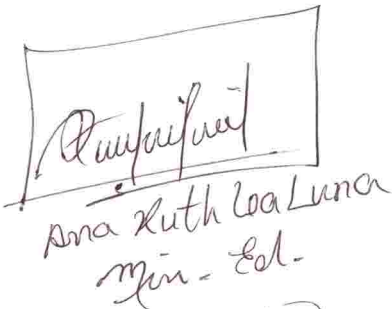 Ana Ruth Loa Luna
Min - Ed -